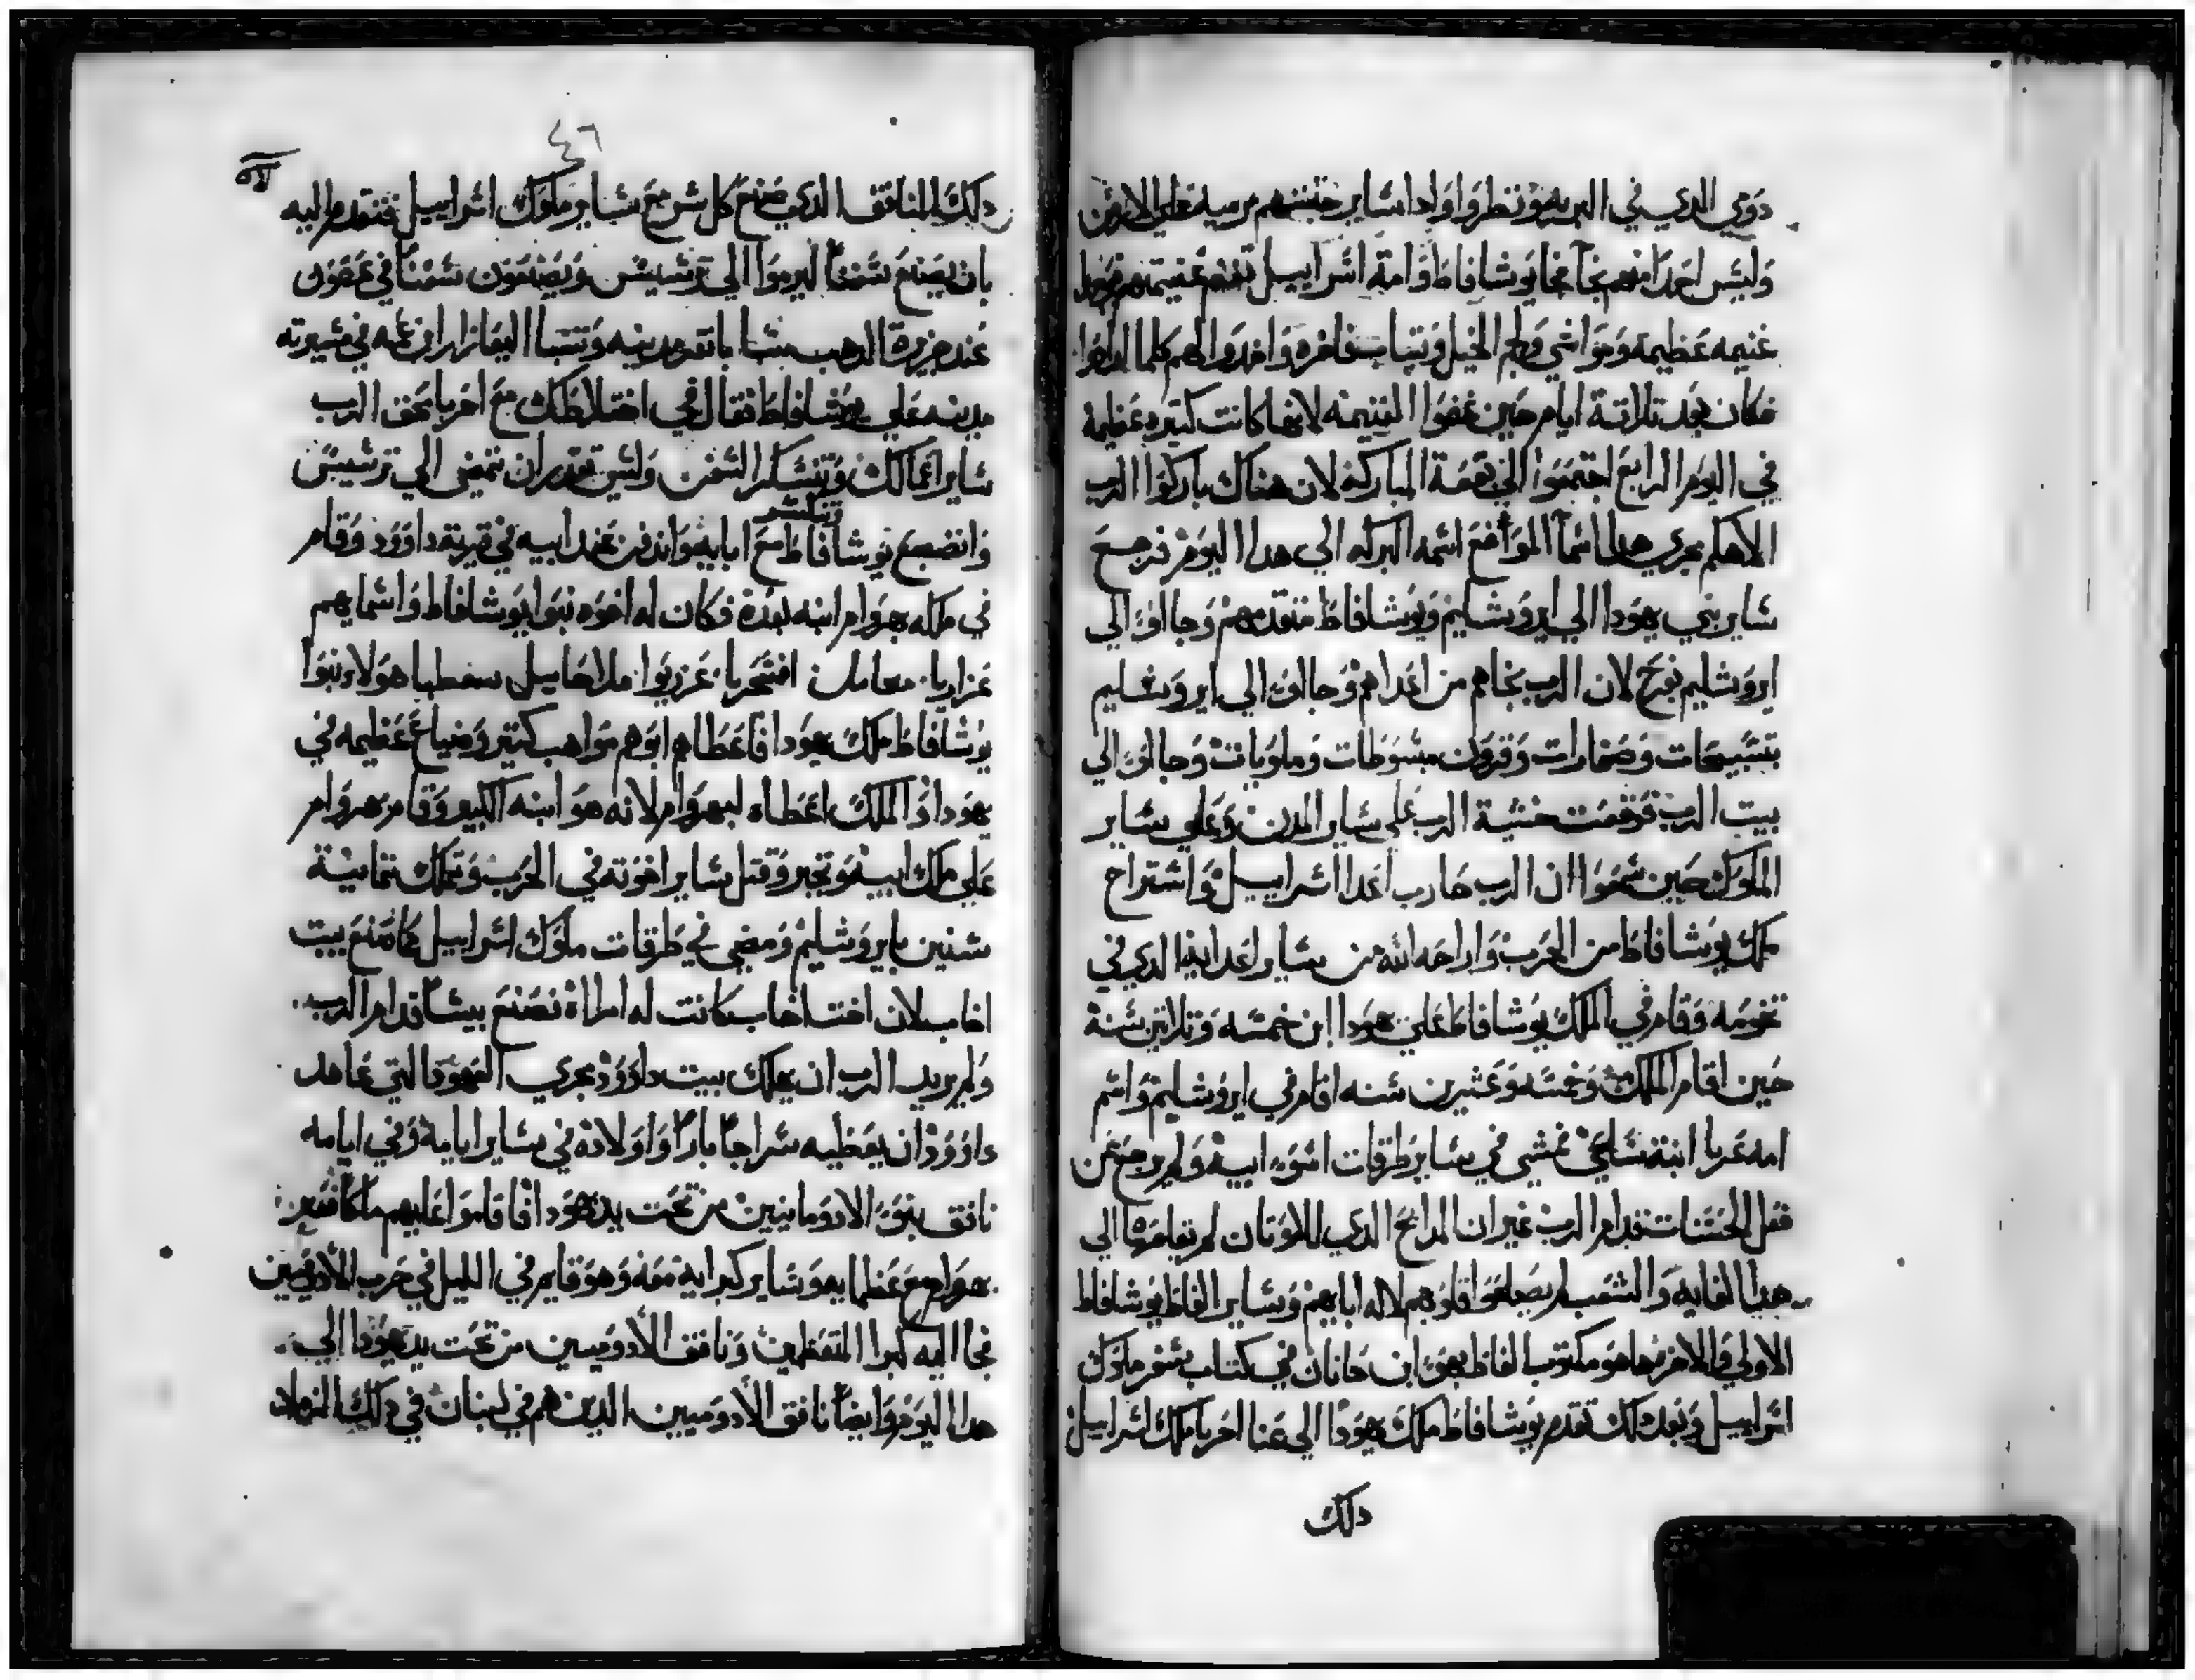 دوي الدي في البريه ونظروا وادا ساير جتثهم مرميه علي الارض
وليس احدا منهم نجا فجا يوشافاط وامة اسراييل تغنم غنيمتهم
غنيمه عظيمه ومواشي ولجم الخيل وتياب فاخره واخدوا لهم كلما ارادوا
فكان بعد تلاتة ايام حين غنموا الغنيمه لانها كانت كتيره عظيمة
في اليوم الرابع اجتمعوا الي بقعة المباركه لان هناك باركوا الرب
الاهكم بجري هدا اسما الموأضع اسمه البركه الي هدا اليوم فرجع
ساير بني يهودا الي ايروشليم ويوشافاط متقدمهم وجا اوا الي
ايروشليم بفرح لان الرب نجاهم من اعداهم وجا اوا الي ايروشليم
بتسبيحات وضمارات وقرون مبسوطات وملويات وجا اوا الي
بيت الرب فوقعت خشية الرب علي ساير المدن وعلي ساير
الملوك حين سمعوا ان الرب حارب اعدا اسراييل واستراح
ملك يوشافاط من الحرب واراحه الله من ساير اعدايه الدي في
تخومه وقام في الملك يوشافاط علي يهودا ابن خمسه وتلاتين سنة
حين اقام الملك وخمسه وعشرين سنه اقام في ايروشليم واسم
امه عربا ابنة شلحي فمشي في ساير طرقات اسوا ابيه ولم يرجع عن
فعل الحسنات قدام الرب غير ان المدابح الدي للاوتان لم يقلعها الي
هدا الغايه والشعب لم يصلحوا قلوبهم لاله اباهم وساير الفاظ يوشافاط
الاولي والاخر فها هو مكتوب الفاظ يهوا ابن حانان في كتاب سفر ملوك
اسراييل وبعد دلك تقدم يوشافاط ملك يهودا الي عنا احزيا ملك اسراييل
دلك
٤٦
دلك المنافق الدي صنع كل شر مع ساير ملوك اسراييل فتقدم اليه
بان يصنع سفنا ليرموا الي ترشيش ويصنعون سفنا في عصون
عند جزيرة الدهب متبا باتقدمدينه وتنبا اليعازار ابن عمه في مشيرته
مدينه علي يوشافاط فقال في اختلاطك مع احزيا يمحق الرب
ساير اعمالك وتنكسر السفن وليس تقدر ان تمضي الي ترشيش
وانضجع يوشافاط مع ابايه واندفن عند ابيه في قرية داوود وقام
في ملكه يهورام ابنه بعدة فكان له اخوه بنوا يوشافاط واسمايهم
عزاريا افتحريا عزريوا ملاحاييل سفطيا هولاء بنوا
يوشافاط ملك يهودا فاعطاهم ابوهم مواهب كتير وضياع عظيمه في
يهودا والملك اعطاه ليهورام لانه هو ابنه الكبير وقام يهورام
علي ملك ابيه وتجبر وقتل ساير اخوته في الحرب وتملك تمانية
سنين بايروشليم ومضي في طرقات ملوك اسراييل كما صنع بيت
اخاب لان اخت اخاب كانت له امراة فصنع بيسا قدام الرب
ولم يريد الرب ان يهلك بيت داوود بجري العهود التي عاهد
داوود ان يعطيه سراجا بارا واولادة في ساير ايامه وفي ايامه
نافق بنوا الادومانيين من تحت يد يهودا فاقاموا عليهم ملكا
يهورام مع عظمايهو وساير كبرايه معه وهو قايم في الليل في حرب الأدوميين
فجا اليه كبرا المتعظمين ونافق الأدوميين من تحت يد يهودا الي
هدا اليوم وايضا نافق الأدوميين الدين هم في لبنان في دلك الزمان